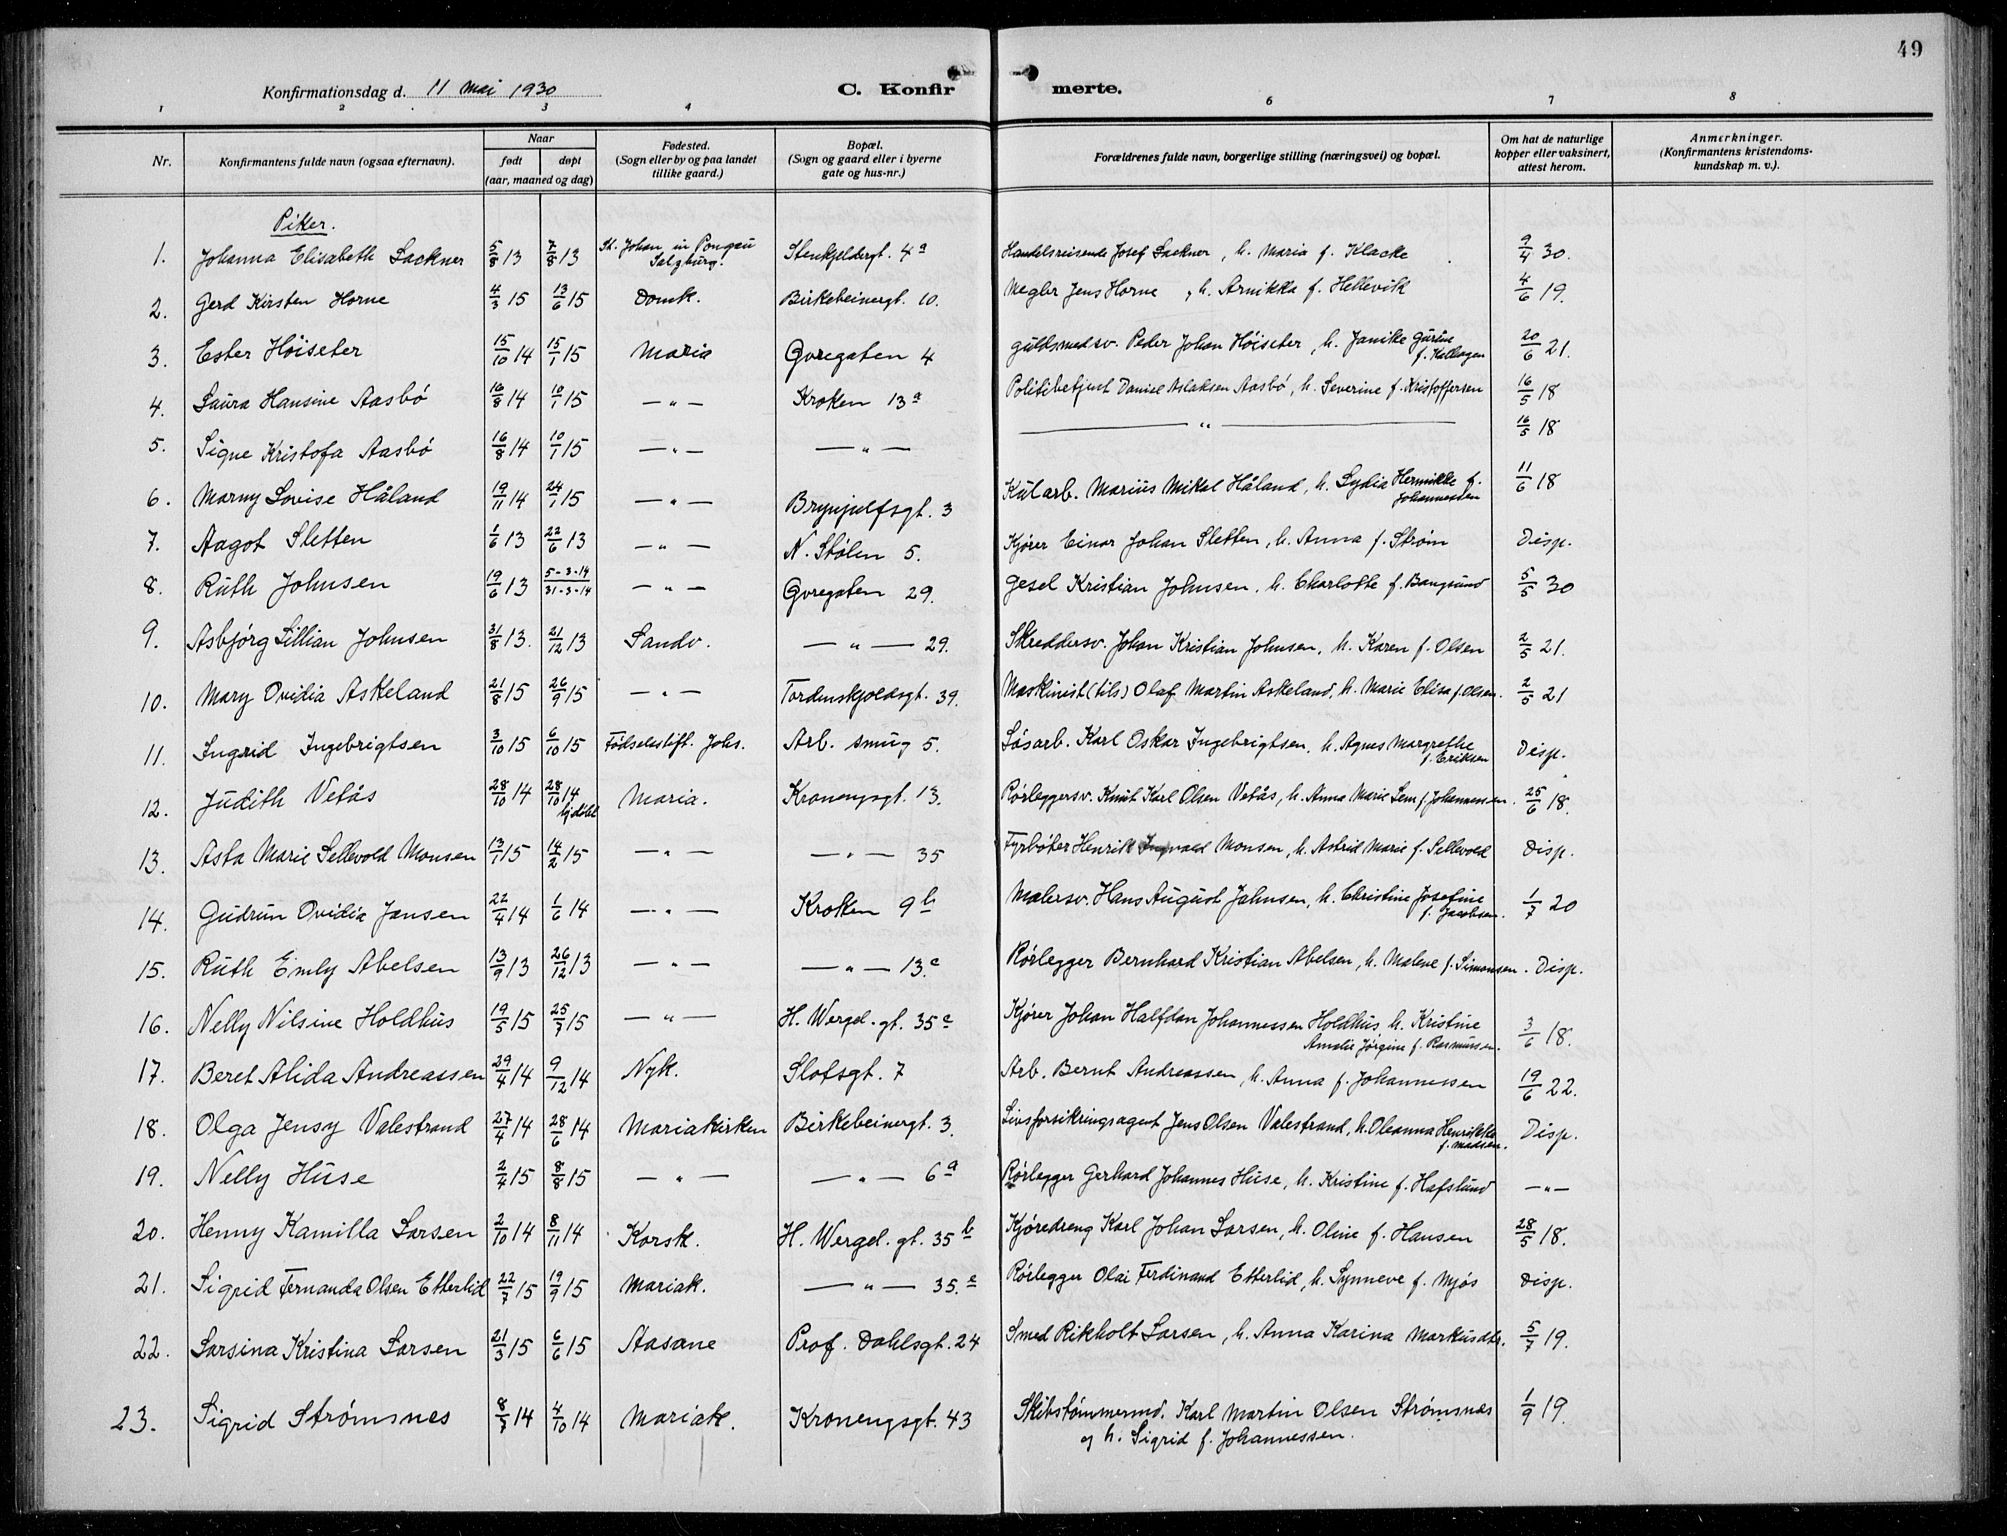 49
Konfirmationsdag d. 11 Mai 1930
C. Konfir merte.
1 2 3 4 6 7 8
Nr. | Konfirmantens fulde navn (ogsaa efternavn). | Naar født døpt (aar, maaned og dag) | Fødested. (Sogn eller by og paa landet tillike gaard.) | Bopæl. (Sogn og gaard eller i byerne gate og hus-nr.) | Forældrenes fulde navn, borgerlige stilling (næringsvei) og bopæl. | Om hat de naturlige kopper eller vaksinert, attest herom. | Anmerkninger. (Konfirmantens kristendoms-kundskap m. v.).
Piker.
1. Johanna Elisabeth Lackner 5/8 13 7/8 13 St. Johan in Pongau Salzburg. Stenkjeldergt. 4a Handelsreisende Josef Lackner, h. Maria f. Klacke 9/4 30.
2. Gerd Kirsten Horne 4/3 15 13/6 15 Domk. Birkebeinergt. 10. Megler Jens Horne, h. Arnikka f. Hellevik 4/6 19.
3. Ester Høiseter 15/10 14 15/1 15 Maria Øvregaten 4 Guldsmedsv. Peder Johan Høiseter, h. Janike Gurine f. Kolhagen 20/6 21.
4. Laura Hansine Aasbø 16/8 14 10/1 15 — " — Kroken 13a Politibetjent Daniel Aslaksen Aasbø, h. Severine f. Kristoffersen 16/5 18
5. Signe Kristofa Aasbø 16/8 14 10/1 15 — " — — " — — " — 16/5 18
6. Marny Lovise Håland 19/11 14 24/1 15 — " — Brynjulfsgt. 3 Kularb. Marius Mikal Håland, h. Lydia Hermikke f. Johannessen 11/6 18
7. Aagot Sletten 1/6 13 22/6 13 — " — N. Stølen 5. Kjører Einar Johan Sletten, h. Anna f. Strøm Disp.
8. Ruth Johnsen 19/6 13 5-3-14 / 31-3-14 — " — Øvregaten 29. Gesel Kristian Johnsen, h. Charlotte f. Bangsund 5/5 30
9. Asbjørg Lillian Johnsen 31/8 13. 21/12 13 Sandv. — " — 29. Skreddersv. Johan Kristian Johnsen, h. Karen f. Olsen 2/5 21.
10. Mary Ovidia Askeland 21/8 15 26/9 15 — " — Tordenskjoldsgt. 39. Maskinist (tils) Olaf Martin Askeland, h. Marie Elisa f. Olsen. 2/5 21
11. Ingrid Ingebrigtsen 3/10 15 6/10 15 Fødselsstift. Johs. Arb. smug 5. Løsarb. Karl Oskar Ingebrigtsen, h. Agnes Margrethe f. Eriksen Disp.
12. Judith Vetås 28/10 14 28/10 14 hjdøbt Maria. Kronengsgt. 13. Rørleggersv. Knut Karl Olsen Vetås, h. Anna Marie Lem f. Johannessen. 25/6 18.
13. Asta Marie Sellevold Monsen 13/1 15 14/2 15 — " — — " — 35 Fyrbøter Henrik Ingvald Monsen, h. Astrid Marie f. Sellevold Disp.
14. Gudrun Ovidia Jansen 22/4 14 1/6 14 — " — Kroken 9b Malersv. Hans August Jahnsen, h. Christine Josefine f. Jacobsen. 1/7 20
15. Ruth Emly Abelsen 13/9 13 26/12 13 — " — — " — 13.c Rørlegger Bernhard Kristian Abelsen, h. Malene f. Simonsen. Disp.
16. Nelly Nilsine Holdhus 19/5 15 25/7 15 — " — H. Wergel. gt. 35c Kjører Johan Halfdan Johannessen Holdhus, h. Kristine Amalie Jørgine f. Rasmussen. 3/6 18.
17. Beret Alida Andreassen 29/4 14 9/12 14 Nyk. Slotsgt. 7 Arb. Bernt Andreassen, h. Anna f. Johannessen 19/6 22.
18. Olga Jensy Valestrand 27/4 14 28/6 14 Mariakirken Birkebeinergt. 3. Livsforsikringsagent Jens Olsen Valestrand, h. Oleanna Henrikke f. Madsen. Disp.
19. Nelly Huse 2/4 15 8/8 15 — " — — " — 6a Rørlegger Gerhard Johannes Huse, h. Kristine f. Hafslund — " —
20. Henny Kamilla Larsen 2/10 14 8/11 14 Korsk. H. Wergel. gt. 35b Kjøredreng Karl Johan Larsen, h. Oline f. Hansen 28/5 18.
21. Sigrid Fernanda Olsen Etterlid 22/7 15 19/9 15 Mariak. — " — 35.c Rørlegger Olai Ferdinand Etterlid, h. Synneve f. Mjøs Disp.
22. Larsina Kristina Larsen 21/3 15 6/6 15 Aasane Prof. Dahlsgt. 24 Smed Rikholt Larsen, h. Anna Karina Markusdtr. 5/7 19.
23. Sigrid Strømsnes 8/7 14 4/10 14 Mariak. Kronengsgt. 43 Skibstømmermd. Karl Martin Olsen Strømsnes og h. Sigrid f. Johannessen. 1/9 19.